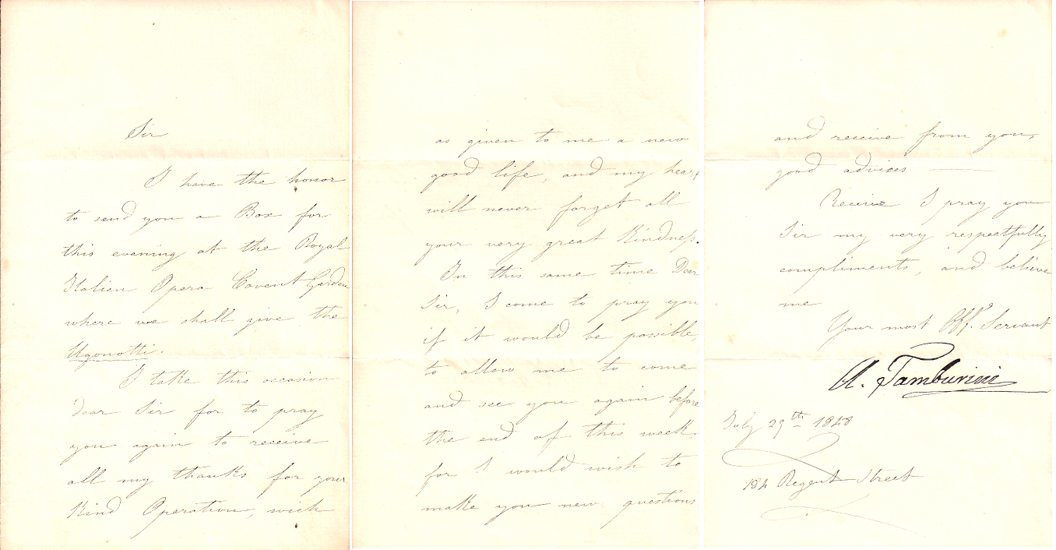 Sir
I have the honor
to send you a Box for
this evening at the Royal
Italian Opera Covent Garden
where we shall give the
Ugonotti.
I take this occasion
dear Sir for to pray
you again to receive
all my thanks for your
Kind Operation, wich
as given to me a new
good life, and my heart
will never forget all
your very great Kindness.
In this same time Dear
Sir, I come to pray you
if it would be possible,
to allow me to come
and see you again before
the end of this week,
for I would wish to
make you new questions
and receive from you,
good advices —
Receive I pray you
Sir my very respectfully
compliments, and believe
me
Your most Aff. Servant
A. Tamburini
July 29th 1848
184 Regent Street